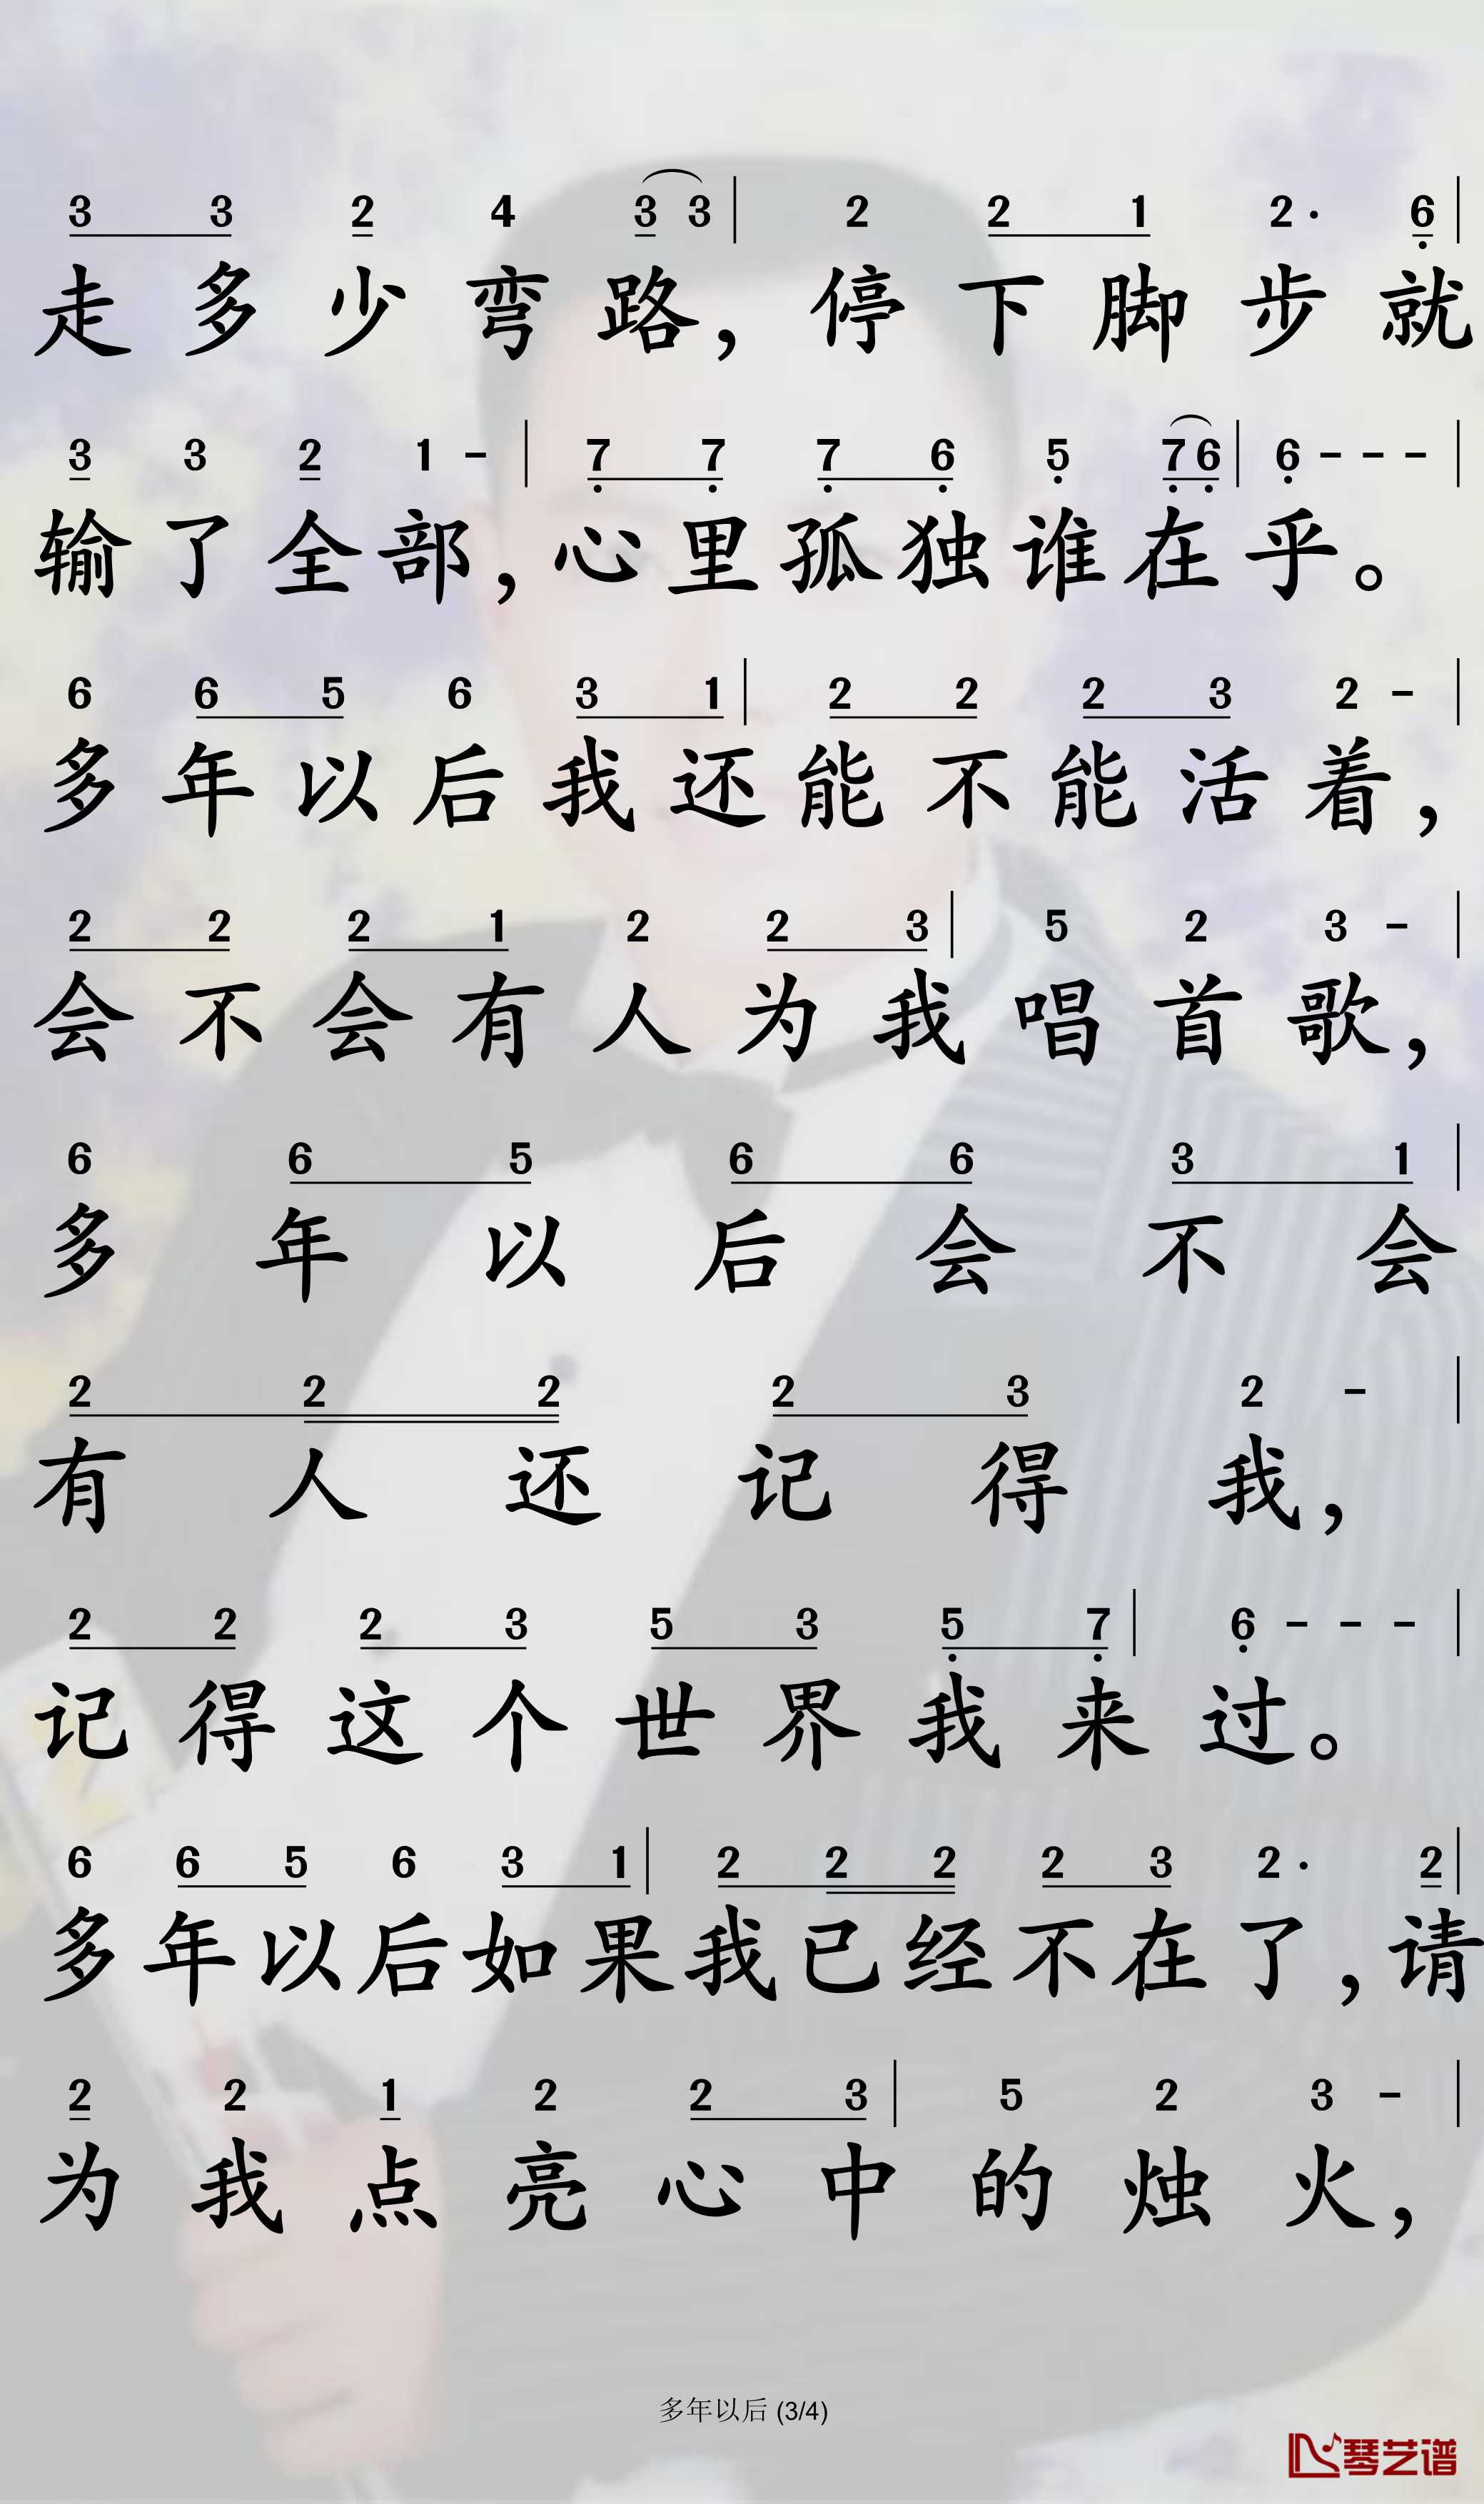 3 3 2 4 3 3 | 2 2 1 2· 6 |
走多少弯路，停下脚步就
3 3 2 1 - | 7 7 7 6 5 7 6 | 6 - - - |
输了全部，心里孤独谁在乎。
6 6 5 6 3 1 | 2 2 2 3 2 - |
多年以后我还能不能活着，
2 2 2 1 2 2 3 | 5 2 3 - |
会不会有人为我唱首歌，
6 6 5 6 6 3 1 |
多年以后会不会
2 2 2 2 3 2 - |
有人还记得我，
2 2 2 3 5 3 5 7 | 6 - - - |
记得这个世界我来过。
6 6 5 6 3 1 | 2 2 2 2 3 2· 2 |
多年以后如果我已经不在了，请
2 2 1 2 2 3 | 5 2 3 - |
为我点亮心中的烛火，
多年以后 (3/4)
琴艺谱